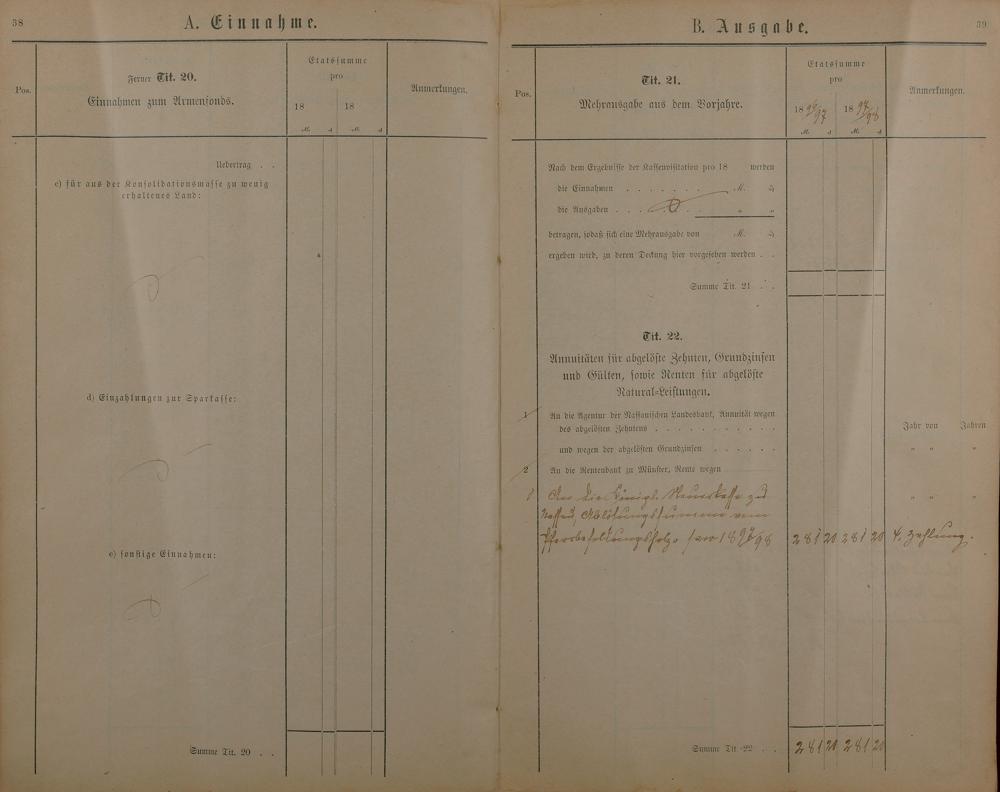 38
A. Einnahme.
Pos.
Ferner Tit. 20.
Einnahmen zum Armenfonds.
Etatssumme
pro
18 18
M. ₰ M. ₰
Anmerkungen.
Uebertrag . .
c) für aus der Konsolidationsmasse zu wenig
erhaltenes Land:
d) Einzahlungen zur Sparkasse:
e) sonstige Einnahmen:
Summe Tit. 20 . .
B. Ausgabe.
39
Pos.
Tit. 21.
Mehrausgabe aus dem Vorjahre.
Etatssumme
pro
18 96/97 18 97/98
M. ₰ M. ₰
Anmerkungen.
Nach dem Ergebnisse der Kassenvisitation pro 18 werden
die Einnahmen . . . . . . . M. ₰
die Ausgaben . . . . . . „ „
betragen, sodaß sich eine Mehrausgabe von M. ₰
ergeben wird, zu deren Deckung hier vorgesehen werden . .
Summe Tit. 21 . .
Tit. 22.
Annuitäten für abgelöste Zehnten, Grundzinsen
und Gülten, sowie Renten für abgelöste
Natural-Leistungen.
1 An die Agentur der Nassauischen Landesbank, Annuität wegen
des abgelösten Zehntens . . . . . . . . . . . Jahr von Jahren
und wegen der abgelösten Grundzinsen . . . . . . „ „ „
2 An die Rentenbank zu Münster, Rente wegen
An die Königl. Steuerkasse zu „ „ „
Nassau, Ablösungssumme vom
pro 1897/98 281 20 281 20 4. Zahlung.
Summe Tit 22 . . 281 20 281 20